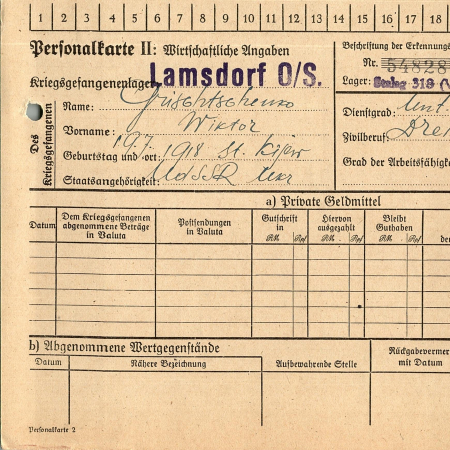 1 2 3 4 5 6 7 8 9 10 11 12 13 14 15 16 17 18
Personalkarte II: Wirtschaftliche Angaben
Kriegsgefangenenlager: Lamsdorf O/S.
Des Kriegsgefangenen
Name: Grischtschenko
Vorname: Wiktor
Geburtstag und -ort: 19.7. 1918 St. Kijew
Staatsangehörigkeit: UdSSR Ukr
Beschriftung der Erkennungs
Nr. 54828
Lager: Stalag 318 (V
Dienstgrad:
Zivilberuf: Dre
Grad der Arbeitsfähigke
a) Private Geldmittel
Datum
Dem Kriegsgefangenen abgenommene Beträge in Valuta
Postsendungen in Valuta
Gutschrift in
RM. Rpf
Hiervon ausgezahlt
RM. Rpf
Bleibt Guthaben
RM. Rpf
de
b) Abgenommene Wertgegenstände
Datum
Nähere Bezeichnung
Aufbewahrende Stelle
Rückgabeverme
mit Datum
Personalkarte 2